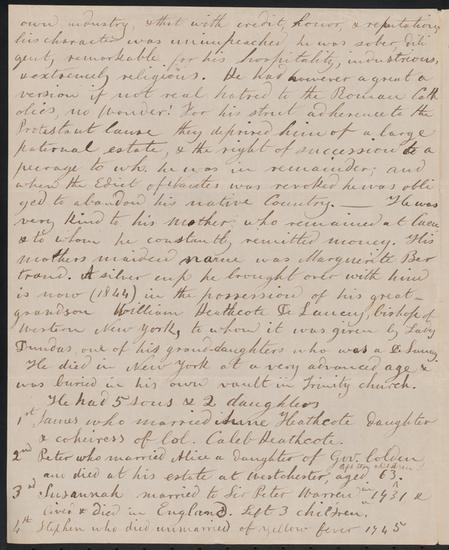 own industry, & that with credit, honor, & reputation,
his character was unimpeached, he was sober dili
gent, remarkable for his hospitality, industrious,
& extremely religious. He had however a great a
version if not real hatred to the Roman Cath
olics, no wonder! For his strict adherence to the
Protestant Cause they deprived him of a large
paternal estate, & the right of succession to a
peerage to wh. he was in remainder; and
when the Edict of Nantes was revoked he was obli
ged to abandon his native Country. — He was
very kind to his mother, who remained at Caen
& to whom he constantly remitted money. His
mothers maiden name was Marguerite Ber
trand. A silver cup he brought over with him
is now (1844) in the possession of his great-
grandson William Heathcote De Lancey, bishop of
Western New York, to whom it was given by Lady
Dundas one of his granddaughters who was a De Lancey
He died in New York at a very advanced age &
was buried in his own vault in Trinity church.
He had 5 sons & 2 daughters
1st James who married Anne Heathcote Daughter
& coheiress of Col. Caleb Heathcote.
2nd Peter who married Alice a daughter of Gov. Colden
and died at his estate at Westchester, aged 63.
3rd Susannah married to Sir Peter Warren in 1731 &
lived & Died in England. Left 3 children.
4th Stephen who died unmarried of yellow fever 1745